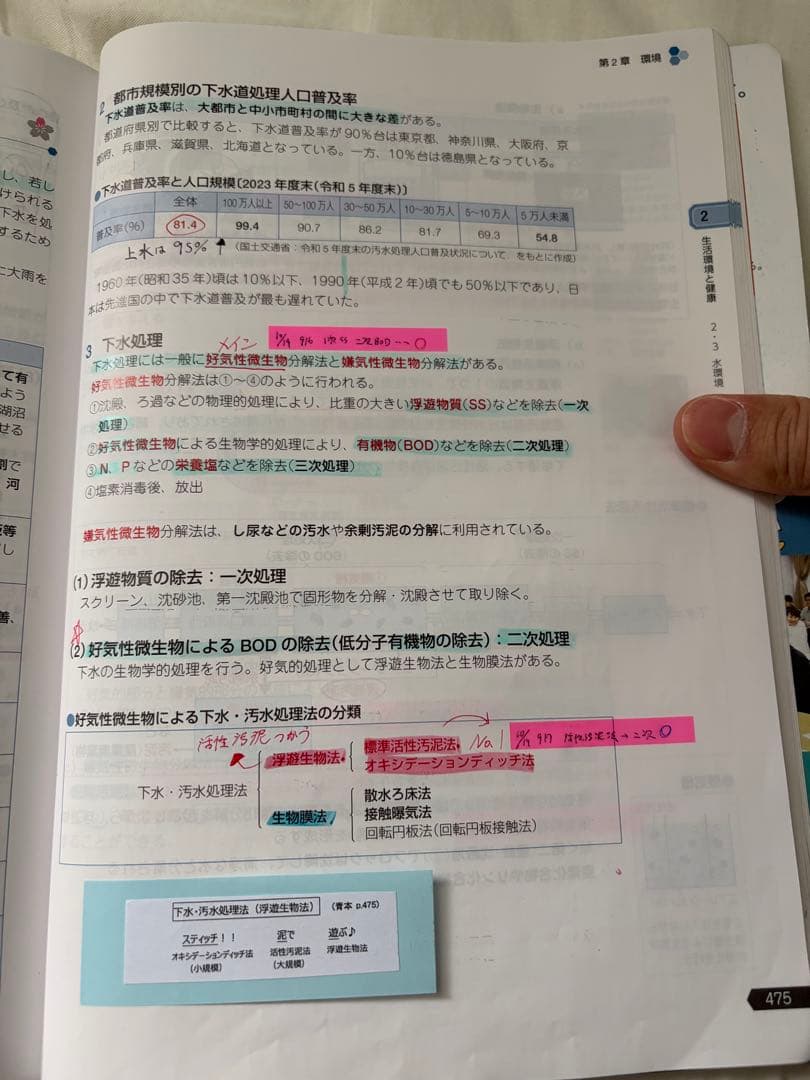 第2章 環境
2 都市規模別の下水道処理人口普及率
下水道普及率は、大都市と中小市町村の間に大きな差がある。
都道府県別で比較すると、下水道普及率が90%台は東京都、神奈川県、大阪府、京
都府、兵庫県、滋賀県、北海道となっている。一方、10%台は徳島県となっている。
●下水道普及率と人口規模〔2023年度末(令和5年度末)〕
全体 100万人以上 50〜100万人 30〜50万人 10〜30万人 5〜10万人 5万人未満
普及率(%) 81.4 99.4 90.7 86.2 81.7 69.3 54.8
上水は95%↑
(国土交通省:令和5年度末の汚水処理人口普及状況について をもとに作成)
1960年(昭和35年)頃は10%以下、1990年(平成2年)頃でも50%以下であり、日
本は先進国の中で下水道普及が最も遅れていた。
3 下水処理
メイン
下水処理には一般に好気性微生物分解法と嫌気性微生物分解法がある。
好気性微生物分解法は①〜④のように行われる。
①沈殿、ろ過などの物理的処理により、比重の大きい浮遊物質(SS)などを除去(一次
処理)
②好気性微生物による生物学的処理により、有機物(BOD)などを除去(二次処理)
③N、Pなどの栄養塩などを除去(三次処理)
④塩素消毒後、放出
嫌気性微生物分解法は、し尿などの汚水や余剰汚泥の分解に利用されている。
(1)浮遊物質の除去:一次処理
スクリーン、沈砂池、第一沈殿池で固形物を分解・沈殿させて取り除く。
(2)好気性微生物によるBODの除去(低分子有機物の除去):二次処理
下水の生物学的処理を行う。好気的処理として浮遊生物法と生物膜法がある。
●好気性微生物による下水・汚水処理法の分類
活性汚泥つかう
下水・汚水処理法
浮遊生物法
標準活性汚泥法 No.1
オキシデーションディッチ法
生物膜法
散水ろ床法
接触曝気法
回転円板法(回転円板接触法)
下水・汚水処理法(浮遊生物法) (青本 p.475)
スティッチ!! 泥で 遊ぶ♪
オキシデーションディッチ法 活性汚泥法 浮遊生物法
(小規模) (大規模)
2
生活環境と健康 2・3 水環境
475